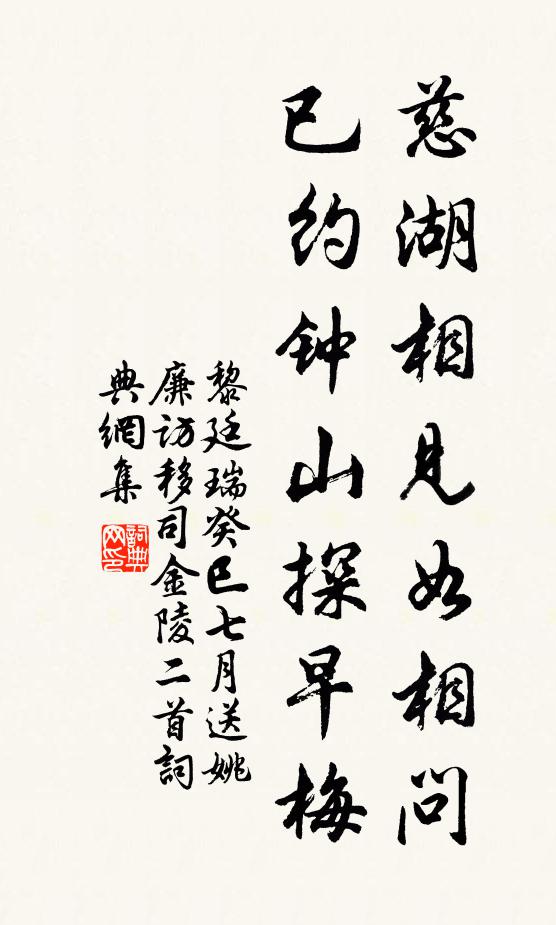 慈湖相见如相问
已约钟山探早梅
黎廷瑞癸巳七月送姚
廉访移司金陵二首詞
典網集
詞典网印